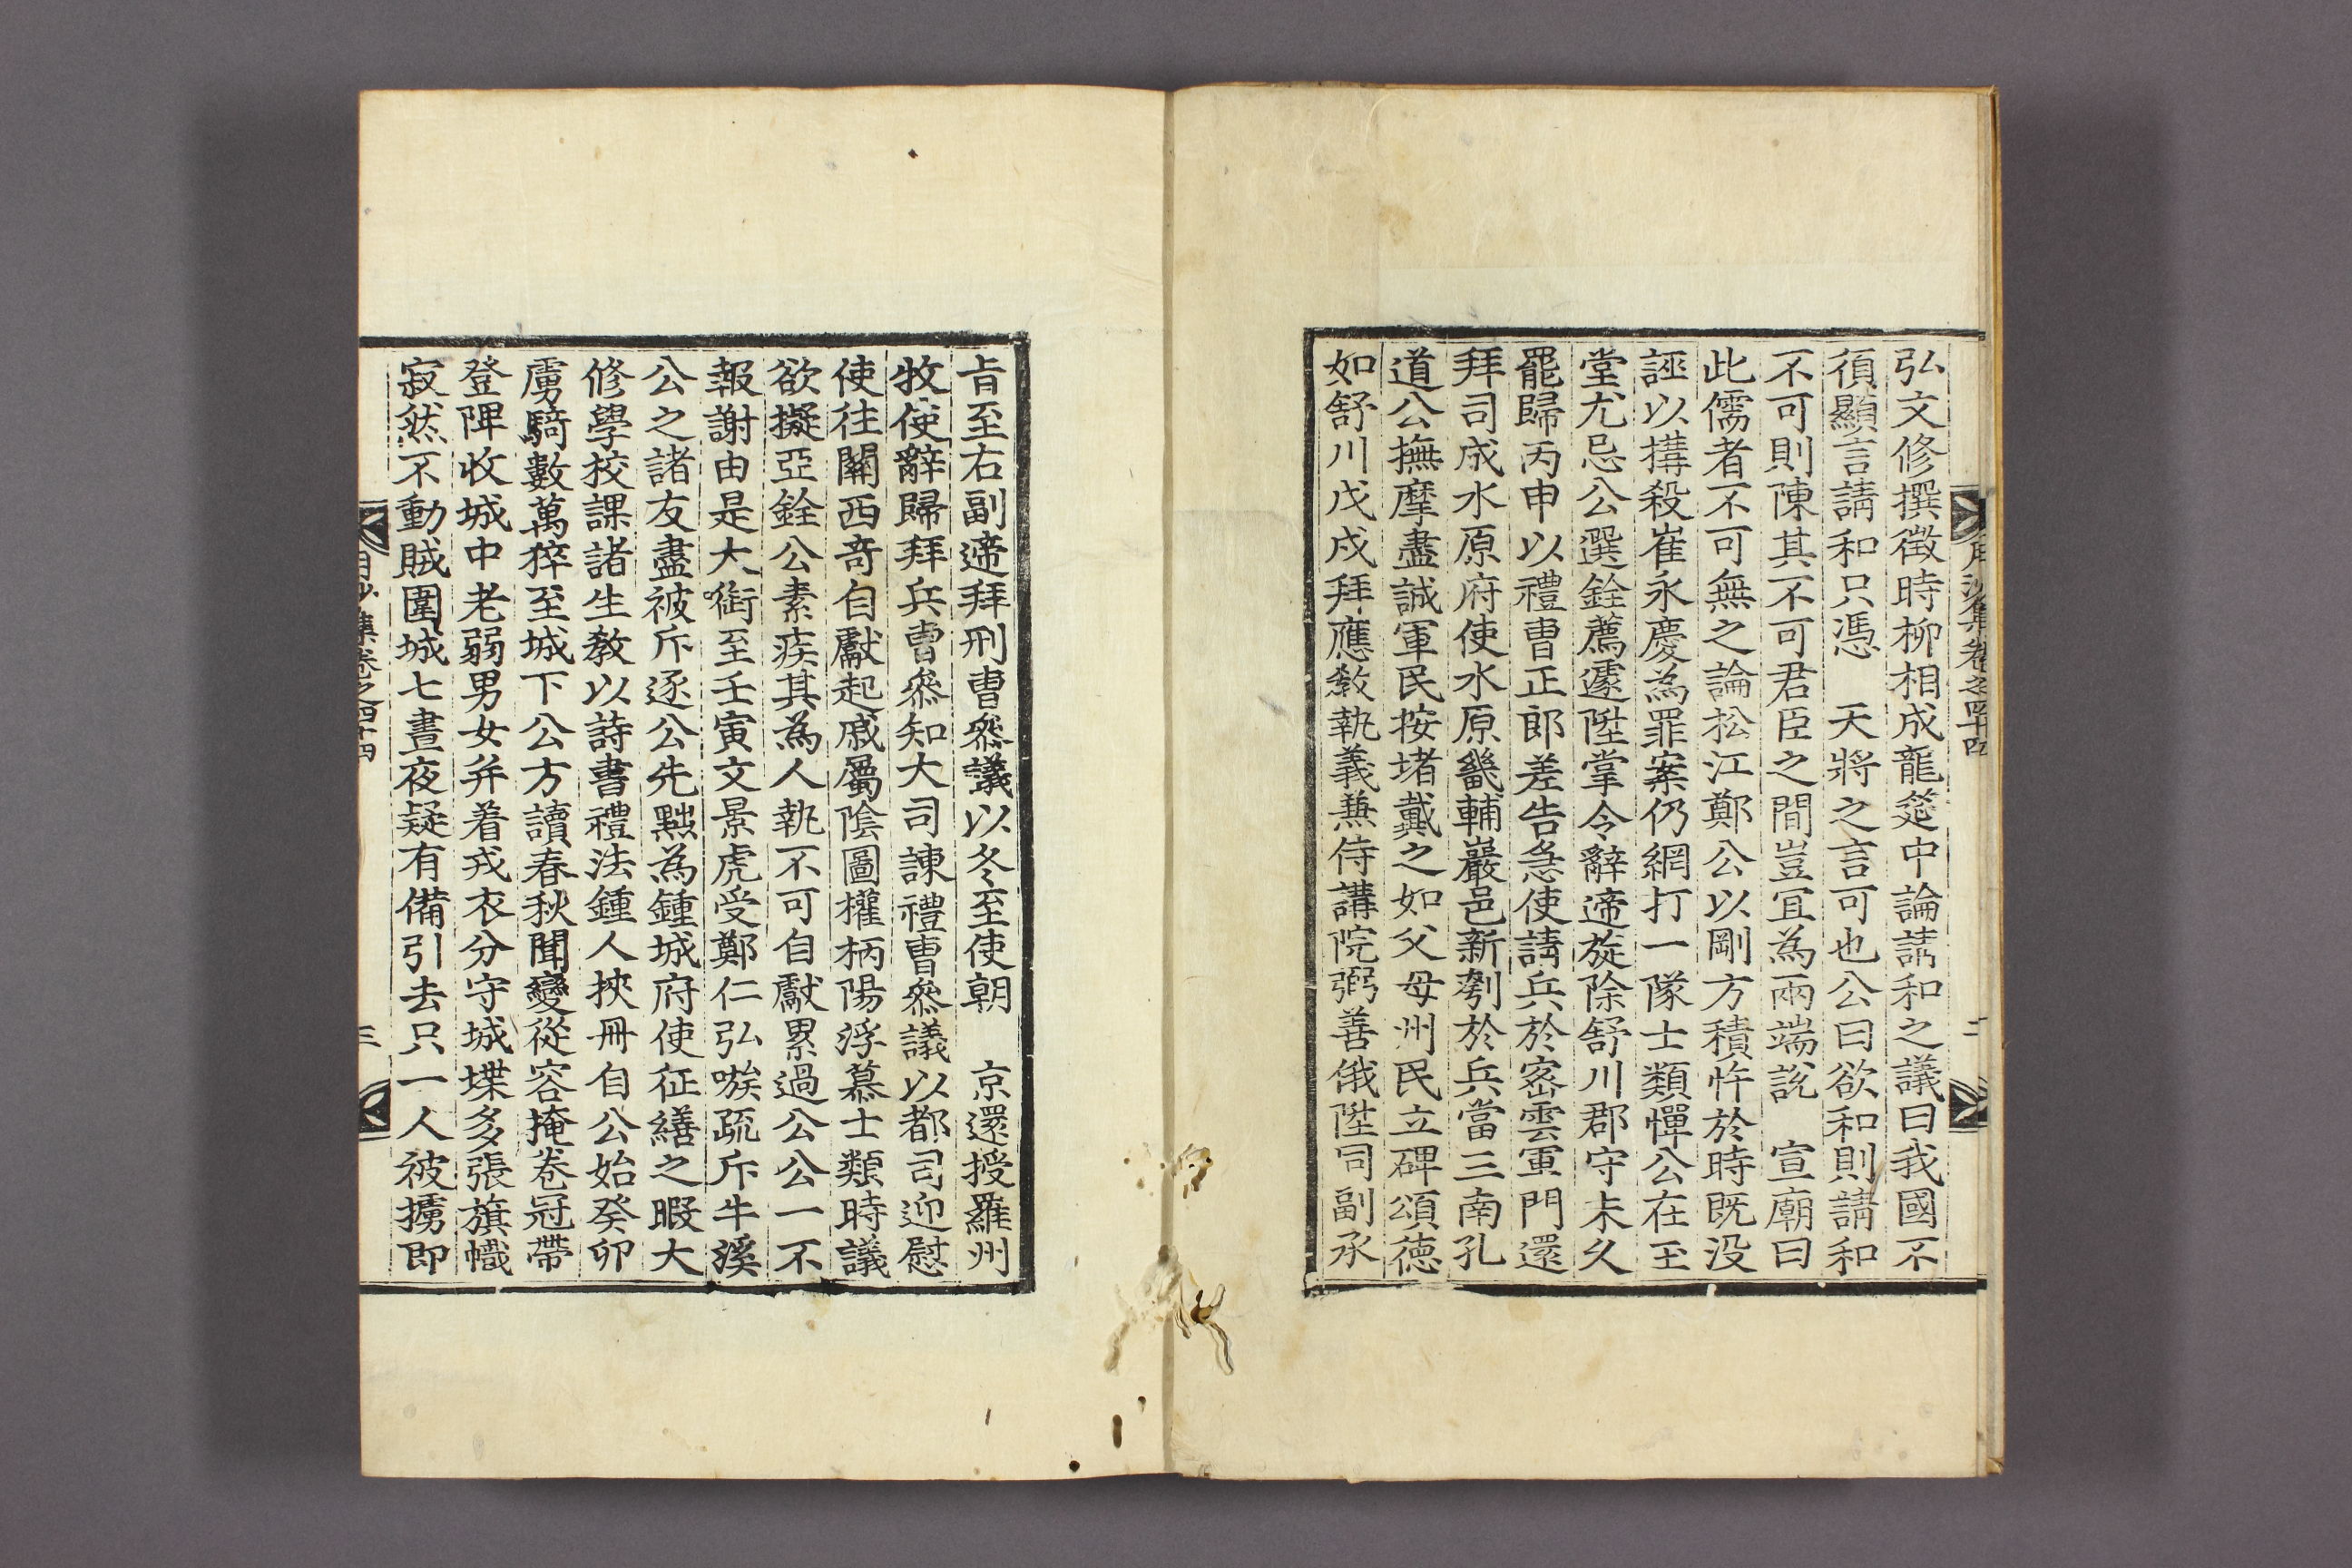 月沙集卷之四十四
二
弘文修撰徵時柳相成龍筵中論請和之議曰我國不
須顯言請和只憑　天將之言可也公曰欲和則請和
不可則陳其不可君臣之間豈宜為兩端說　宣廟曰
此儒者不可無之論松江鄭公以剛方積忤於時既沒
誣以搆殺崔永慶為罪案仍網打一隊士類憚公在玉
堂尤忌公選銓薦遽陞掌令辭遞旋除舒川郡守未久
罷歸丙申以禮曹正郎差告急使請兵於密雲軍門還
拜司成水原府使水原畿輔巖邑新刳於兵當三南孔
道公撫摩盡誠軍民按堵戴之如父母州民立碑頌德
如舒川戊戌拜應教執義兼侍講院弼善俄陞同副承
旨至右副遞拜刑曹叅議以冬至使朝　京還授羅州
牧使辭歸拜兵曹叅知大司諫禮曹叅議以都司迎慰
使往關西奇自獻起戚屬陰圖權柄陽浮慕士類時議
欲擬亞銓公素疾其為人執不可自獻累過公公一不
報謝由是大銜至壬寅文景虎受鄭仁弘嗾疏斥牛溪
公之諸友盡被斥逐公先黜為鍾城府使征繕之暇大
修學校課諸生教以詩書禮法鍾人挾冊自公始癸卯
虜騎數萬猝至城下公方讀春秋聞變從容掩卷冠帶
登陴收城中老弱男女并着戎衣分守城堞多張旗幟
寂然不動賊圍城七晝夜疑有備引去只一人被擄即
月沙集卷之四十四
三